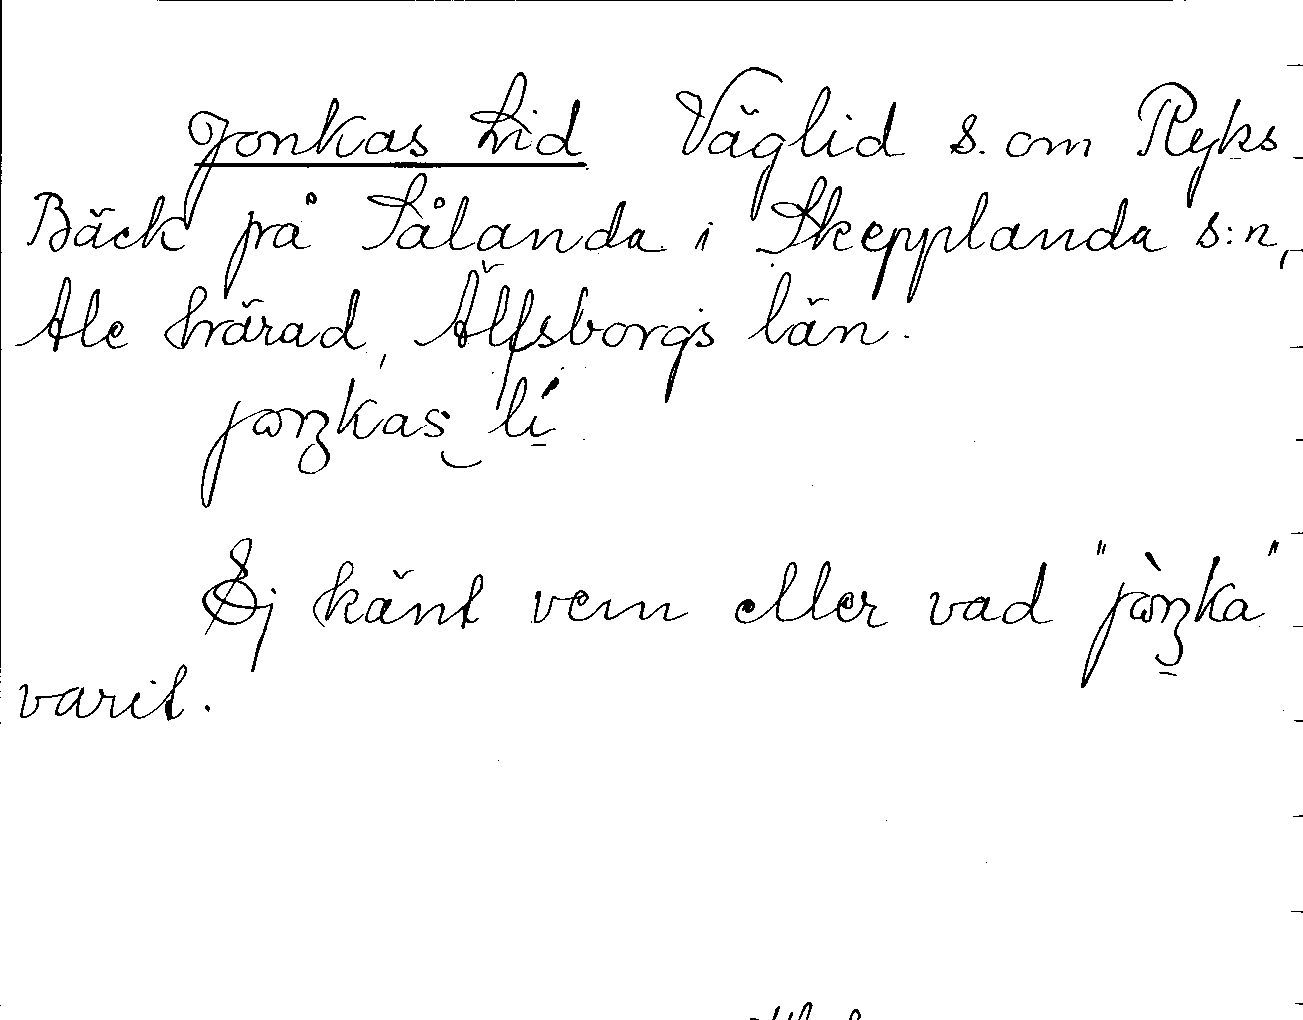 Jonkas Lid Väglid s. om Ryks
Bäck på Sålanda i Skepplanda s:n,
Ale härad, Älfsborgs län.
Ej känt vem eller vad
varit.